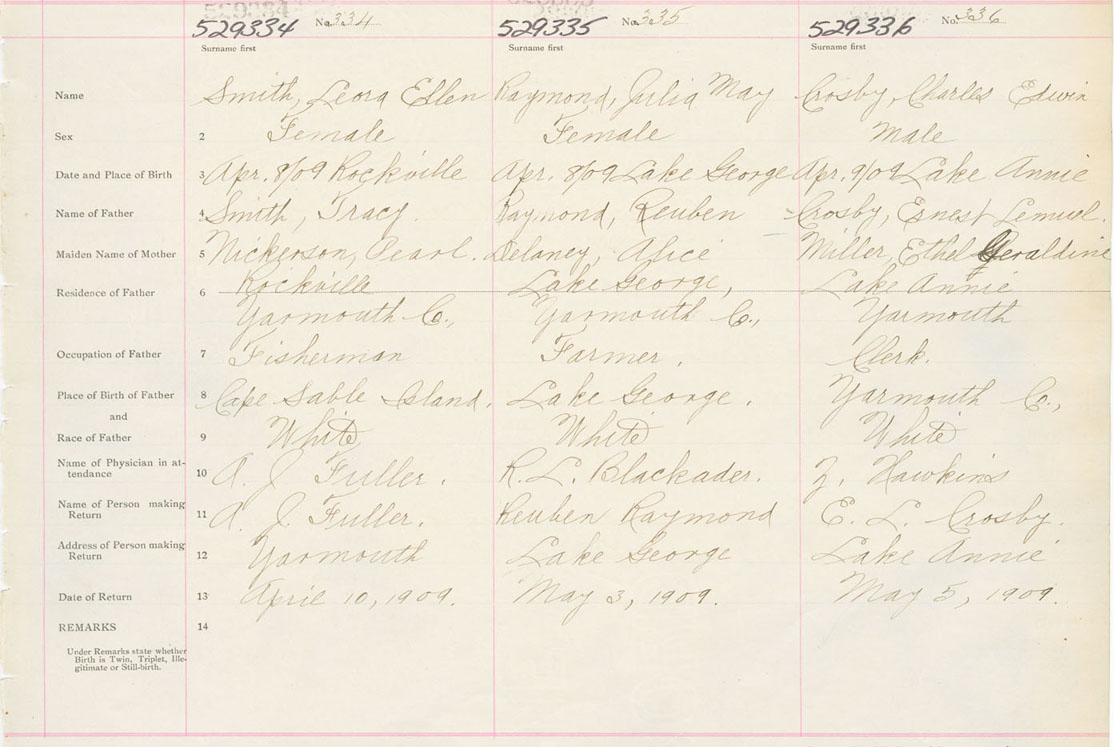 529334 No. 334 529335 No. 335 529336 No. 336
Surname first Surname first Surname first
Name Smith, Leora Ellen Raymond, Julia May Crosby, Charles Edwin
Sex 2 Female Female Male
Date and Place of Birth 3 Apr. 8/09 Rockville Apr. 8/09 Lake George Apr. 9/09 Lake Annie
Name of Father 4 Smith, Tracy. Raymond, Reuben Crosby, Ernest Lemuel.
Maiden Name of Mother 5 Nickerson, Pearl. Delaney, Alice Miller, Ethel Geraldine
Residence of Father 6 Rockville Lake George, Lake Annie
Yarmouth Co., Yarmouth Co., Yarmouth
Occupation of Father 7 Fisherman Farmer. Clerk.
Place of Birth of Father 8 Cape Sable Island. Lake George. Yarmouth Co.,
and
Race of Father 9 White White White
Name of Physician in at-
tendance 10 A. J. Fuller. R. L. Blackader. Z. Hawkins
Name of Person making
Return 11 A. J. Fuller. Reuben Raymond E. L. Crosby.
Address of Person making
Return 12 Yarmouth Lake George Lake Annie
Date of Return 13 April 10, 1909. May 3, 1909. May 5, 1909.
REMARKS 14
Under Remarks state whether
Birth is Twin, Triplet, Ille-
gitimate or Still-birth.